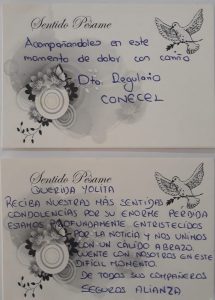 Sentido Pésame
Acompañandoles en este
momento de dolor con cariño
Dto. Regulario
CONECEL
Sentido Pésame
QUERIDA YOLITA
RECIBA NUESTRAS MÁS SENTIDAS
CONDOLENCIAS POR SU ENORME PERDIDA
ESTAMOS PROFUNDAMENTE ENTRISTECIDOS
POR LA NOTICIA Y NOS UNIMOS
CON UN CÁLIDO ABRAZO.
CUENTE CON NOSOTROS EN ESTE
DIFICIL MOMENTO.
DE TODOS SUS COMPAÑEROS
SEGUROS ALIANZA